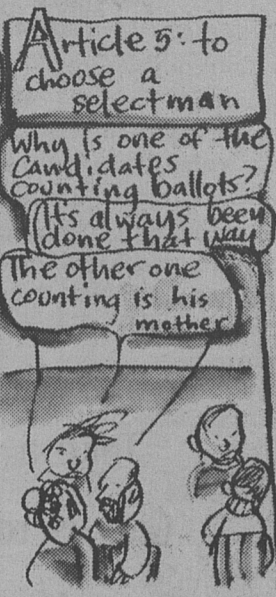 Article 5: to
choose a
selectman
Why is one of the
candidates
counting ballots?
It's always been
done that way
The other one
counting is his
mother